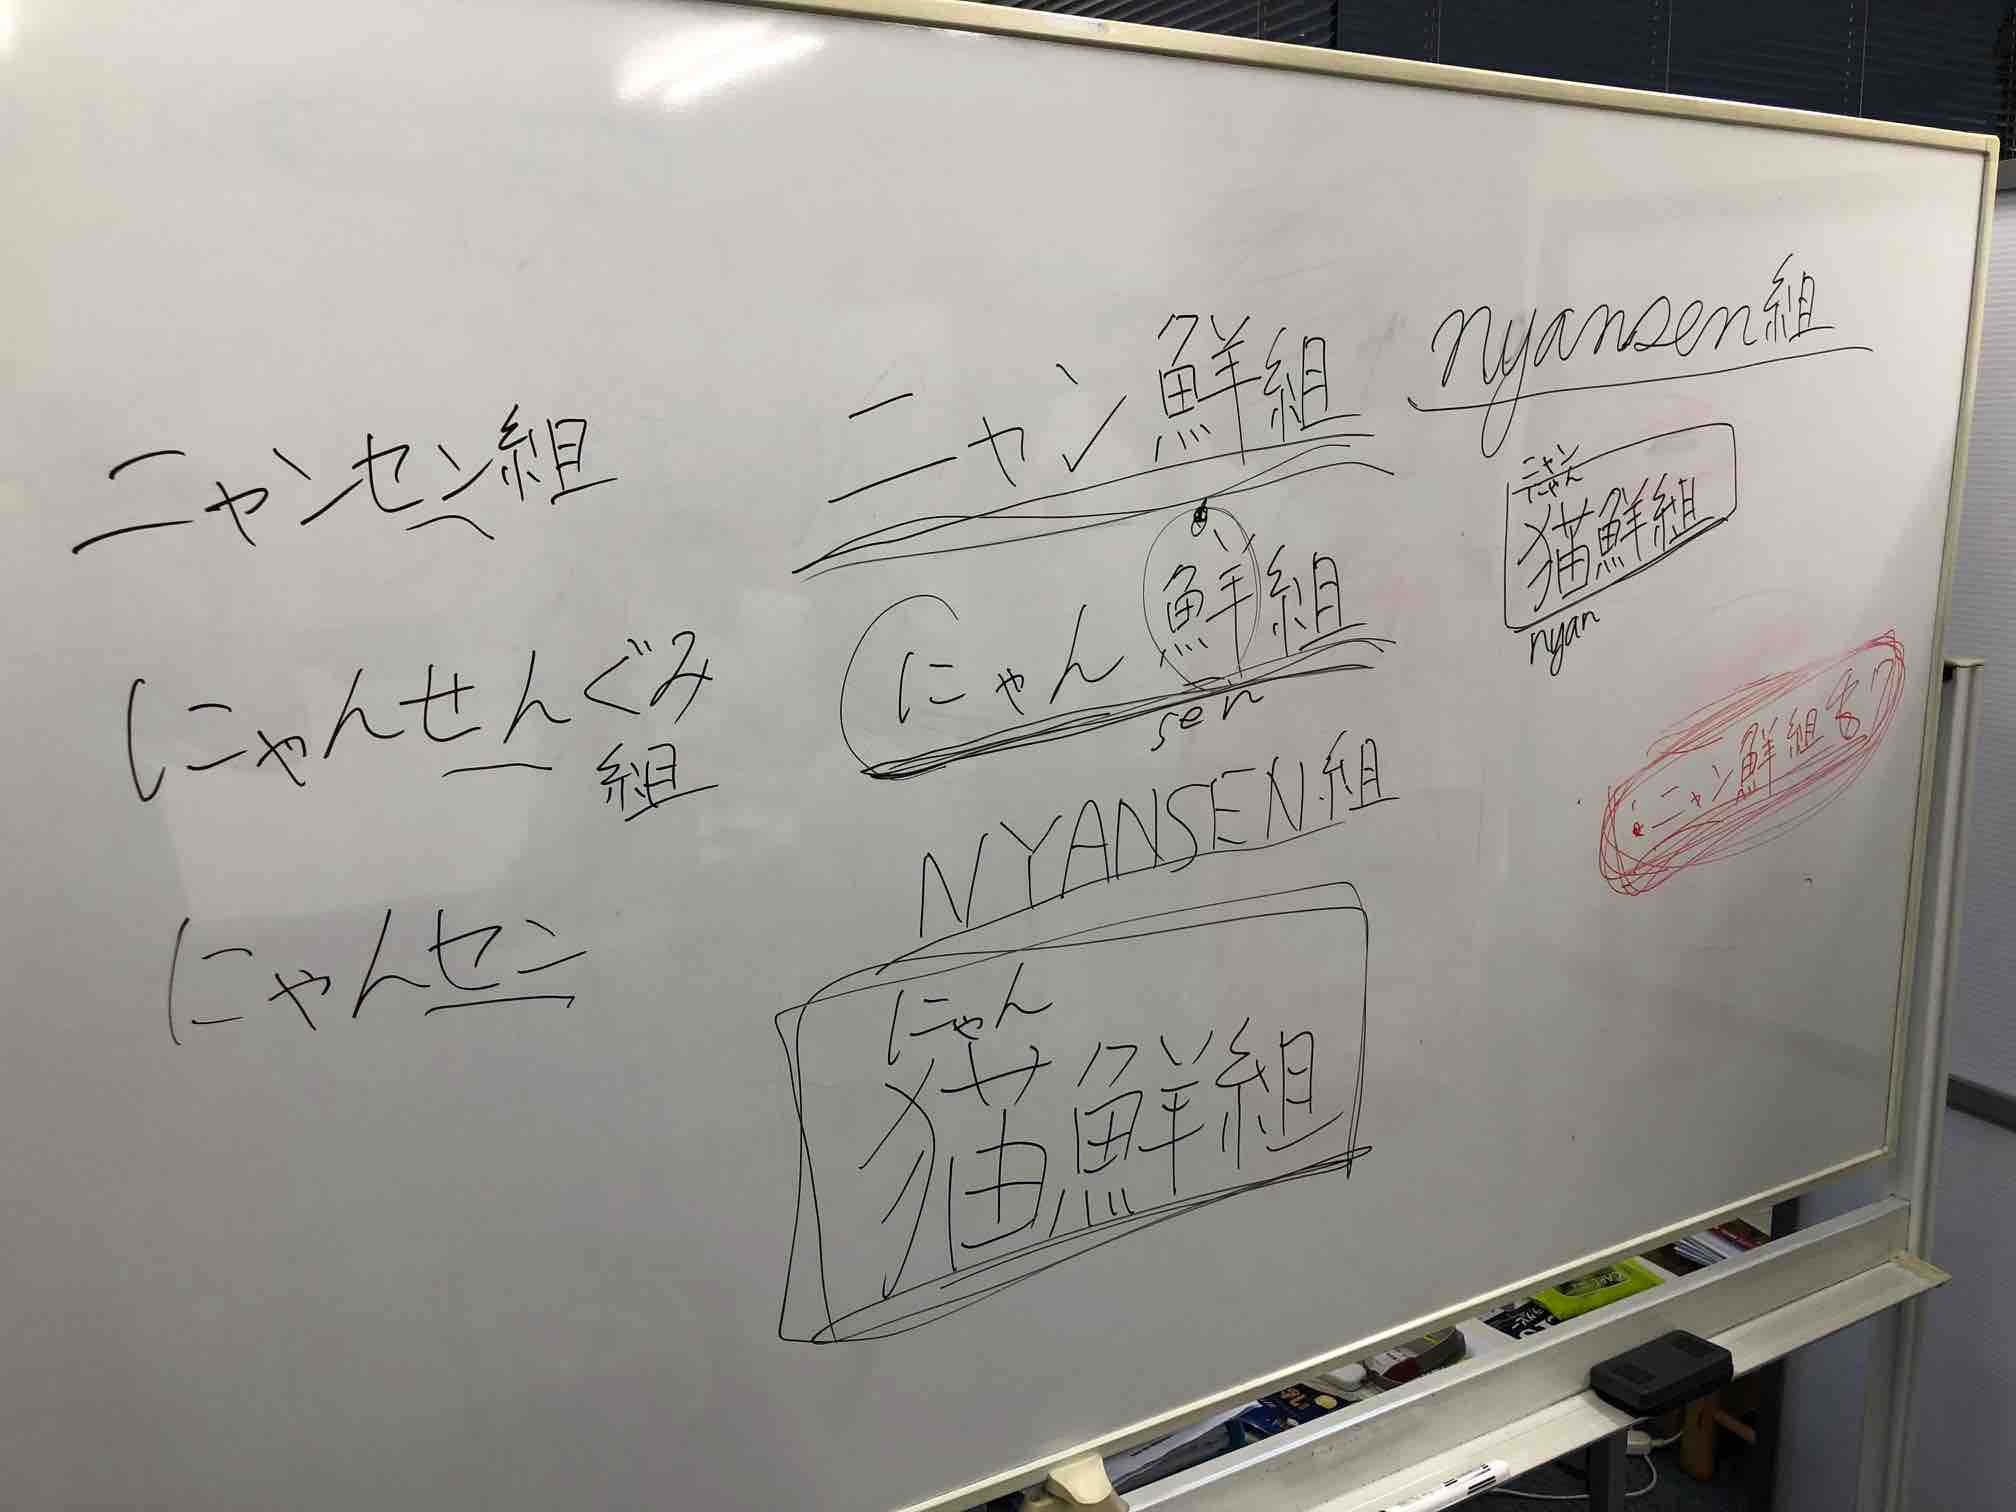 ニャンセン組
にゃんせんぐみ
組
にゃんセン
ニャン鮮組
にゃん鮮組
sen
NYANSEN組
にゃん
猫鮮組
nyansen組
ニャン
にゃん
猫鮮組
nyan
ニャン鮮組